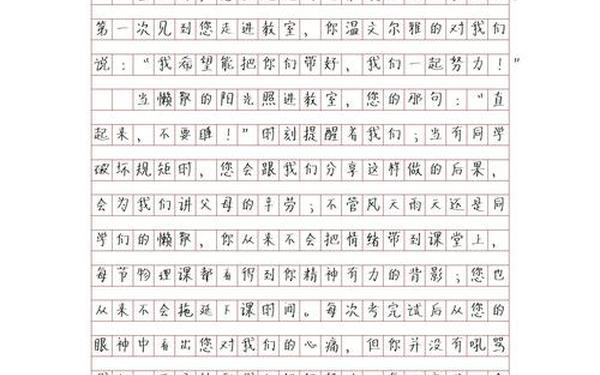 第一次见到您走进教室，你温文尔雅的对我们
说：“我希望能把你们带好，我们一起努力！”
当懒散的阳光照进教室，您的那句：“直
起来，不要睡！”时刻提醒着我们；当有同学
破坏规矩时，您会跟我们分享这样做的后果，
会为我们讲父母的辛劳；不管风天雨天还是同
学们的懒散，你从来不会把情绪带到课堂上，
每节物理课都看得到你精神有力的背影；您也
从来不会拖延下课时间。每次考完试后从您的
眼神中看出您对我们的心痛，但你并没有吼骂